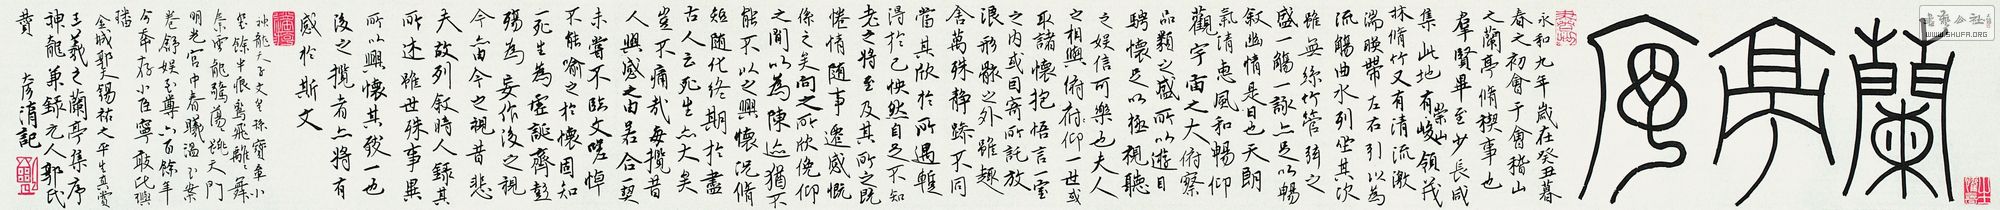 蘭亭序
永和九年歲在癸丑暮
春之初會于會稽山
之蘭亭脩稧事也
羣賢畢至少長咸
集此地有崇山峻領茂
林脩竹又有清流激
湍暎帶左右引以為
流觴曲水列坐其次
雖無絲竹管弦之
盛一觴一詠亦足以暢
叙幽情是日也天朗
氣清惠風和暢仰
觀宇宙之大俯察
品類之盛所以遊目
騁懷足以極視聽
之娛信可樂也夫人
之相與俯仰一世或
取諸懷抱悟言一室
之內或因寄所託放
浪形骸之外雖趣
舍萬殊静躁不同
當其欣於所遇蹔
得於己怏然自足不知
老之將至及其所之既
惓情隨事遷感慨
係之矣向之所欣俛仰
之間以為陳迹猶不
能不以之興懷況脩
短隨化終期於盡
古人云死生亦大矣
豈不痛哉每攬昔
人興感之由若合一契
未嘗不臨文嗟悼
不能喻之於懷固知
一死生為虛誕齊彭
殤為妄作後之視
今亦由今之視昔悲
夫故列叙時人錄其
所述雖世殊事異
所以興懷其致一也
後之攬者亦將有
感於斯文
神龍天子文皇孫寶章小
璽餘半痕驚飛離舞
龍天門
明光宮中春曦溫玉案
卷舒娛至尊六百餘年
今存小臣寧敢比璵
璠
金城郭天錫祐之平生真賞
王羲之蘭亭集序
神龍本錄元人郭氏
贊 記
書藝公社
WWW.SHUFA.ORG